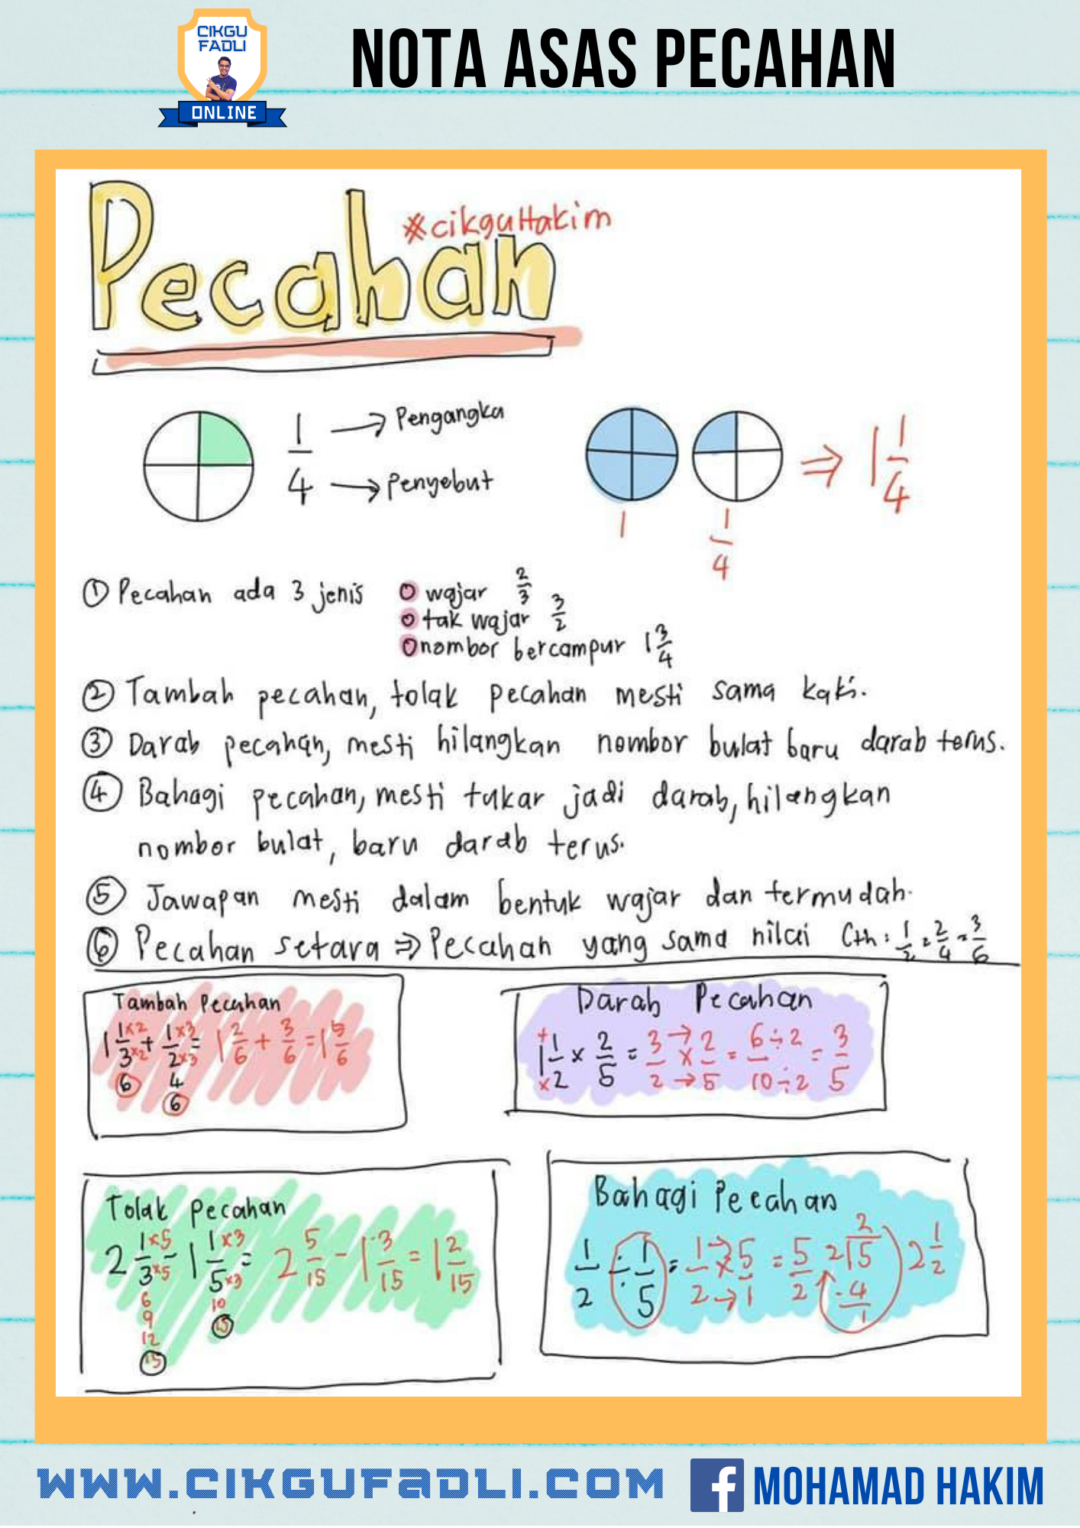 CIKGU
FADLI
ONLINE
NOTA ASAS PECAHAN
#cikguHakim
Pecahan
1/4 → Pengangka
→ Penyebut
⇒ 1 1/4
1
1/4
① Pecahan ada 3 jenis o wajar 2/3
o tak wajar 3/2
o nombor bercampur 1 3/4
② Tambah pecahan, tolak pecahan mesti sama kaki.
③ Darab pecahan, mesti hilangkan nombor bulat baru darab terus.
④ Bahagi pecahan, mesti tukar jadi darab, hilangkan
nombor bulat, baru darab terus.
⑤ Jawapan mesti dalam bentuk wajar dan termudah.
⑥ Pecahan setara ⇒ Pecahan yang sama nilai Cth: 1/2 = 2/4 = 3/6
Tambah Pecahan
1 1×2/3×2 + 1×3/2×3 = 1 2/6 + 3/6 = 1 5/6
6 4
6
Darab Pecahan
1 1/2 × 2/5 = 3/2 × 2/5 = 6÷2/10÷2 = 3/5
Tolak Pecahan
2 1×5/3×5 - 1 1×3/5×3 = 2 5/15 - 1 3/15 = 1 2/15
6 10
9 15
12
15
Bahagi Pecahan
1/2 ÷ 1/5 = 1/2 × 5/1 = 5/2 2)5 2 1/2
2
-4
1
WWW.CIKGUFADLI.COM
f MOHAMAD HAKIM